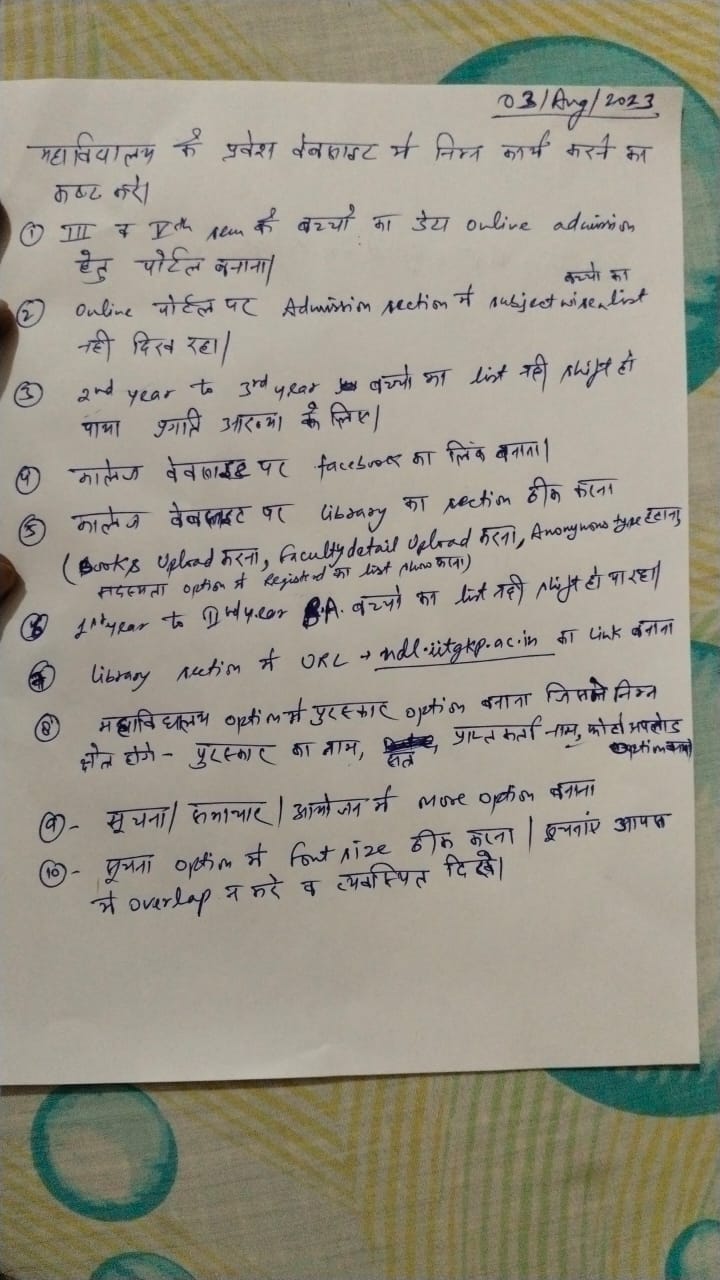 03/Aug/2023
महाविद्यालय के प्रवेश वेबसाइट में निम्न कार्य करने का
कष्ट करे।
① III व Vth sem के बच्चों का डेटा online admission
हेतु पोर्टल बनाना।
② Online पोर्टल पर Admission section में बच्चो का subject wise list
नही दिख रहा।
③ 2nd year to 3rd year बच्चो का list नही shift हो
पाया प्रगति आख्या के लिए।
④ कालेज वेबसाइट पर facebook का लिंक बनाना।
⑤ कालेज वेबसाइट पर library का section ठीक करना
(Books Upload करना, Faculty detail Upload करना, Anonymous type हटाना,
सदस्यता option में Registerd का list show करना)
⑥ 1st year to IInd year B.A. बच्चो का list नही shift हो पा रहा।
⑦ library section में URL → ndl.iitgkp.ac.in का link बनाना
⑧ महाविद्यालय option में पुरस्कार option बनाना जिसमे निम्न
होगे - पुरस्कार का नाम, प्राप्त कर्ता नाम, फोटो अपलोड
option बनाना
⑨ - सूचना/समाचार/आयोजन में more option बनाना
⑩ - सूचना option में font size ठीक करना। सूचनाएं आपस
में overlap न करे व व्यवस्थित दिखे।